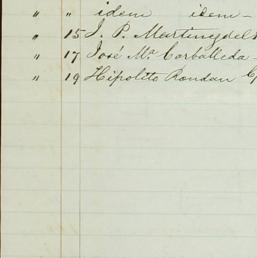 " " idem idem -
" 15 J. P. Martinez del
" 17 José Mª Carballeda -
" 19 Hipolito Rondan